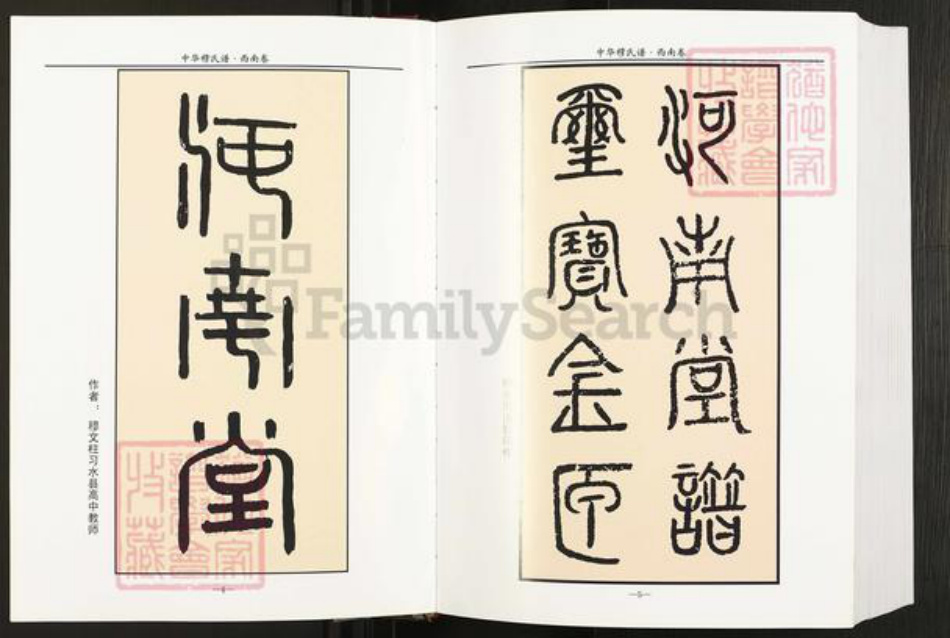 中华穆氏谱·西南卷
河南堂
作者：穆文柱习水县高中教师
—4—
中华穆氏谱·西南卷
河南堂谱
璽寶金匠
—5—
FamilySearch